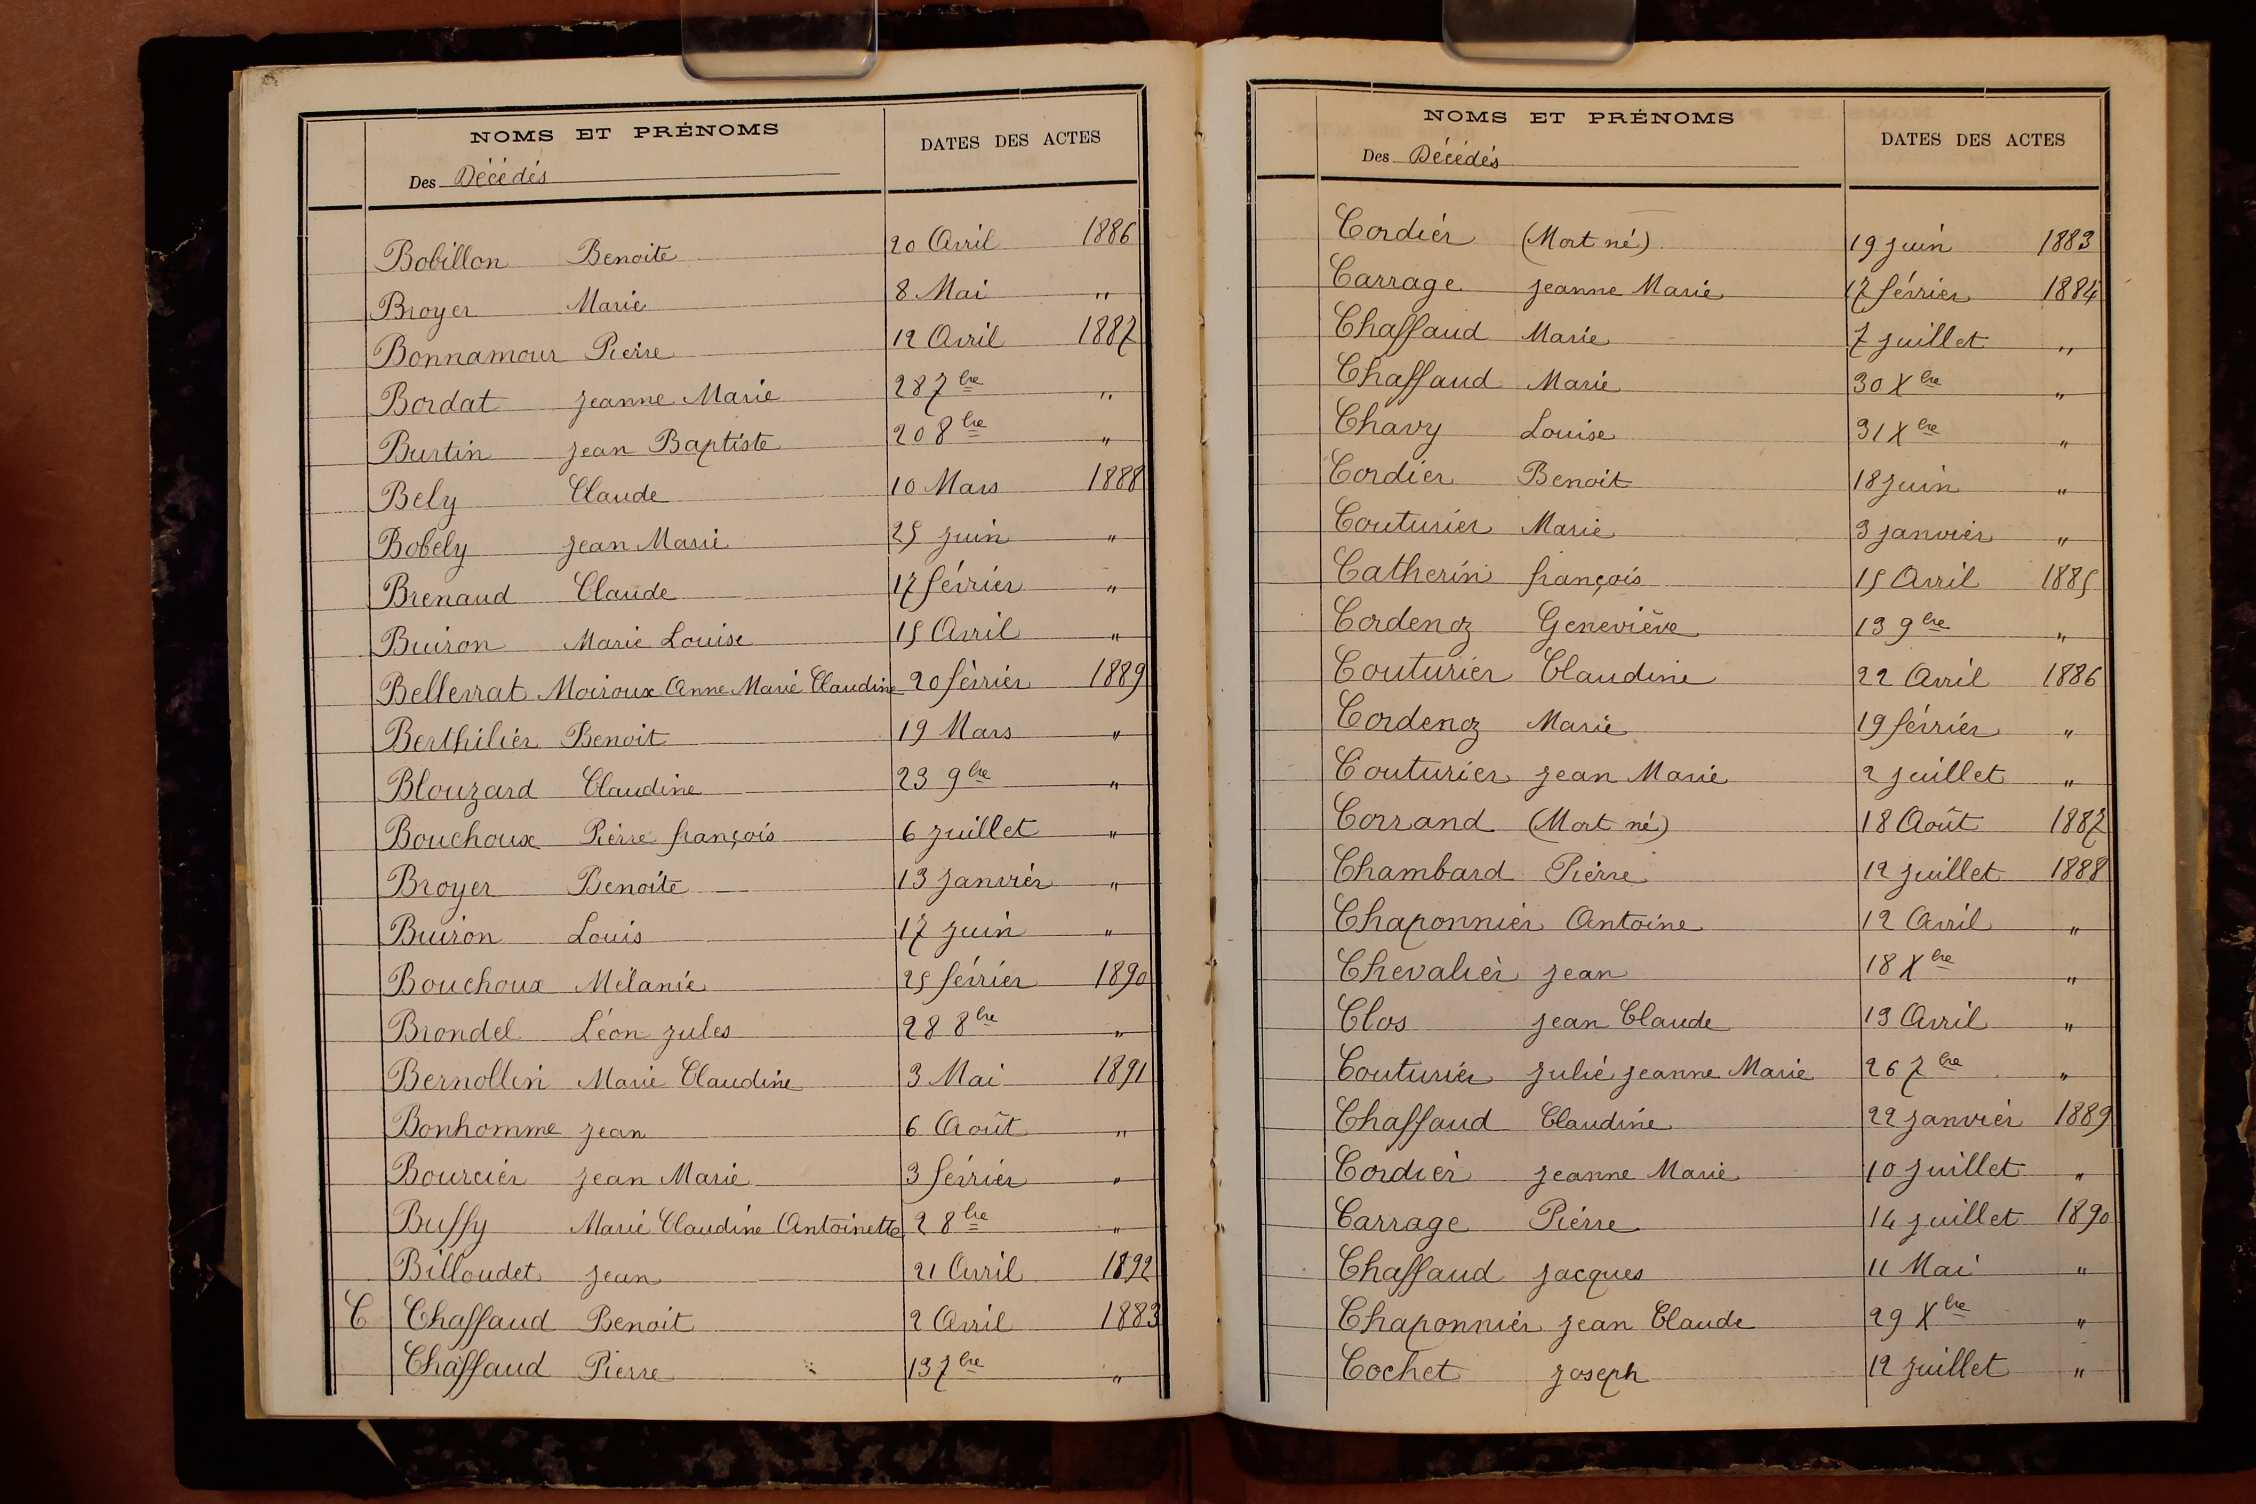 NOMS ET PRÉNOMS DATES DES ACTES
Des Décédés
Bobillon Benoite 20 Avril 1886
Broyer Marie 8 Mai "
Bonnamour Pierre 12 Avril 1887
Bordat Jeanne Marie 28 7bre "
Burtin Jean Baptiste 20 8bre "
Bely Claude 10 Mars 1888
Bobely Jean Marie 25 Juin "
Brenaud Claude 17 février "
Buiron Marie Louise 15 Avril "
Bellerrat Moiroux Anne Marie Claudine 20 février 1889
Berthilier Benoit 19 Mars "
Blouzard Claudine 23 9bre "
Bouchoux Pierre françois 6 Juillet "
Broyer Benoite 13 Janvier "
Buiron Louis 17 Juin "
Bouchoux Mélanie 25 février 1890
Brondel Léon Jules 28 8bre "
Bernollin Marie Claudine 3 Mai 1891
Bonhomme Jean 6 Août "
Bourcier Jean Marie 3 février "
Buffy Marie Claudine Antoinette 2 8bre "
Billoudet Jean 21 Avril 1892
C Chaffaud Benoit 2 Avril 1883
Chaffaud Pierre 13 7bre "
NOMS ET PRÉNOMS DATES DES ACTES
Des Décédés
Cordier (Mort né) 19 Juin 1883
Carrage Jeanne Marie 17 février 1884
Chaffaud Marie 7 Juillet "
Chaffaud Marie 30 Xbre "
Chavy Louise 31 Xbre "
Cordier Benoit 18 Juin "
Couturier Marie 3 Janvier "
Catherin françois 15 Avril 1885
Cordenoz Geneviève 13 9bre "
Couturier Claudine 22 Avril 1886
Cordenoz Marie 19 février "
Couturier Jean Marie 2 Juillet "
Corrand (Mort né) 18 Août 1887
Chambard Pierre 12 Juillet 1888
Chaponnier Antoine 12 Avril "
Chevalier Jean 18 Xbre "
Clos Jean Claude 13 Avril "
Couturier Julie Jeanne Marie 26 7bre "
Chaffaud Claudine 22 Janvier 1889
Cordier Jeanne Marie 10 Juillet "
Carrage Pierre 14 Juillet 1890
Chaffaud Jacques 11 Mai "
Chaponnier Jean Claude 29 Xbre "
Cochet Joseph 12 Juillet "